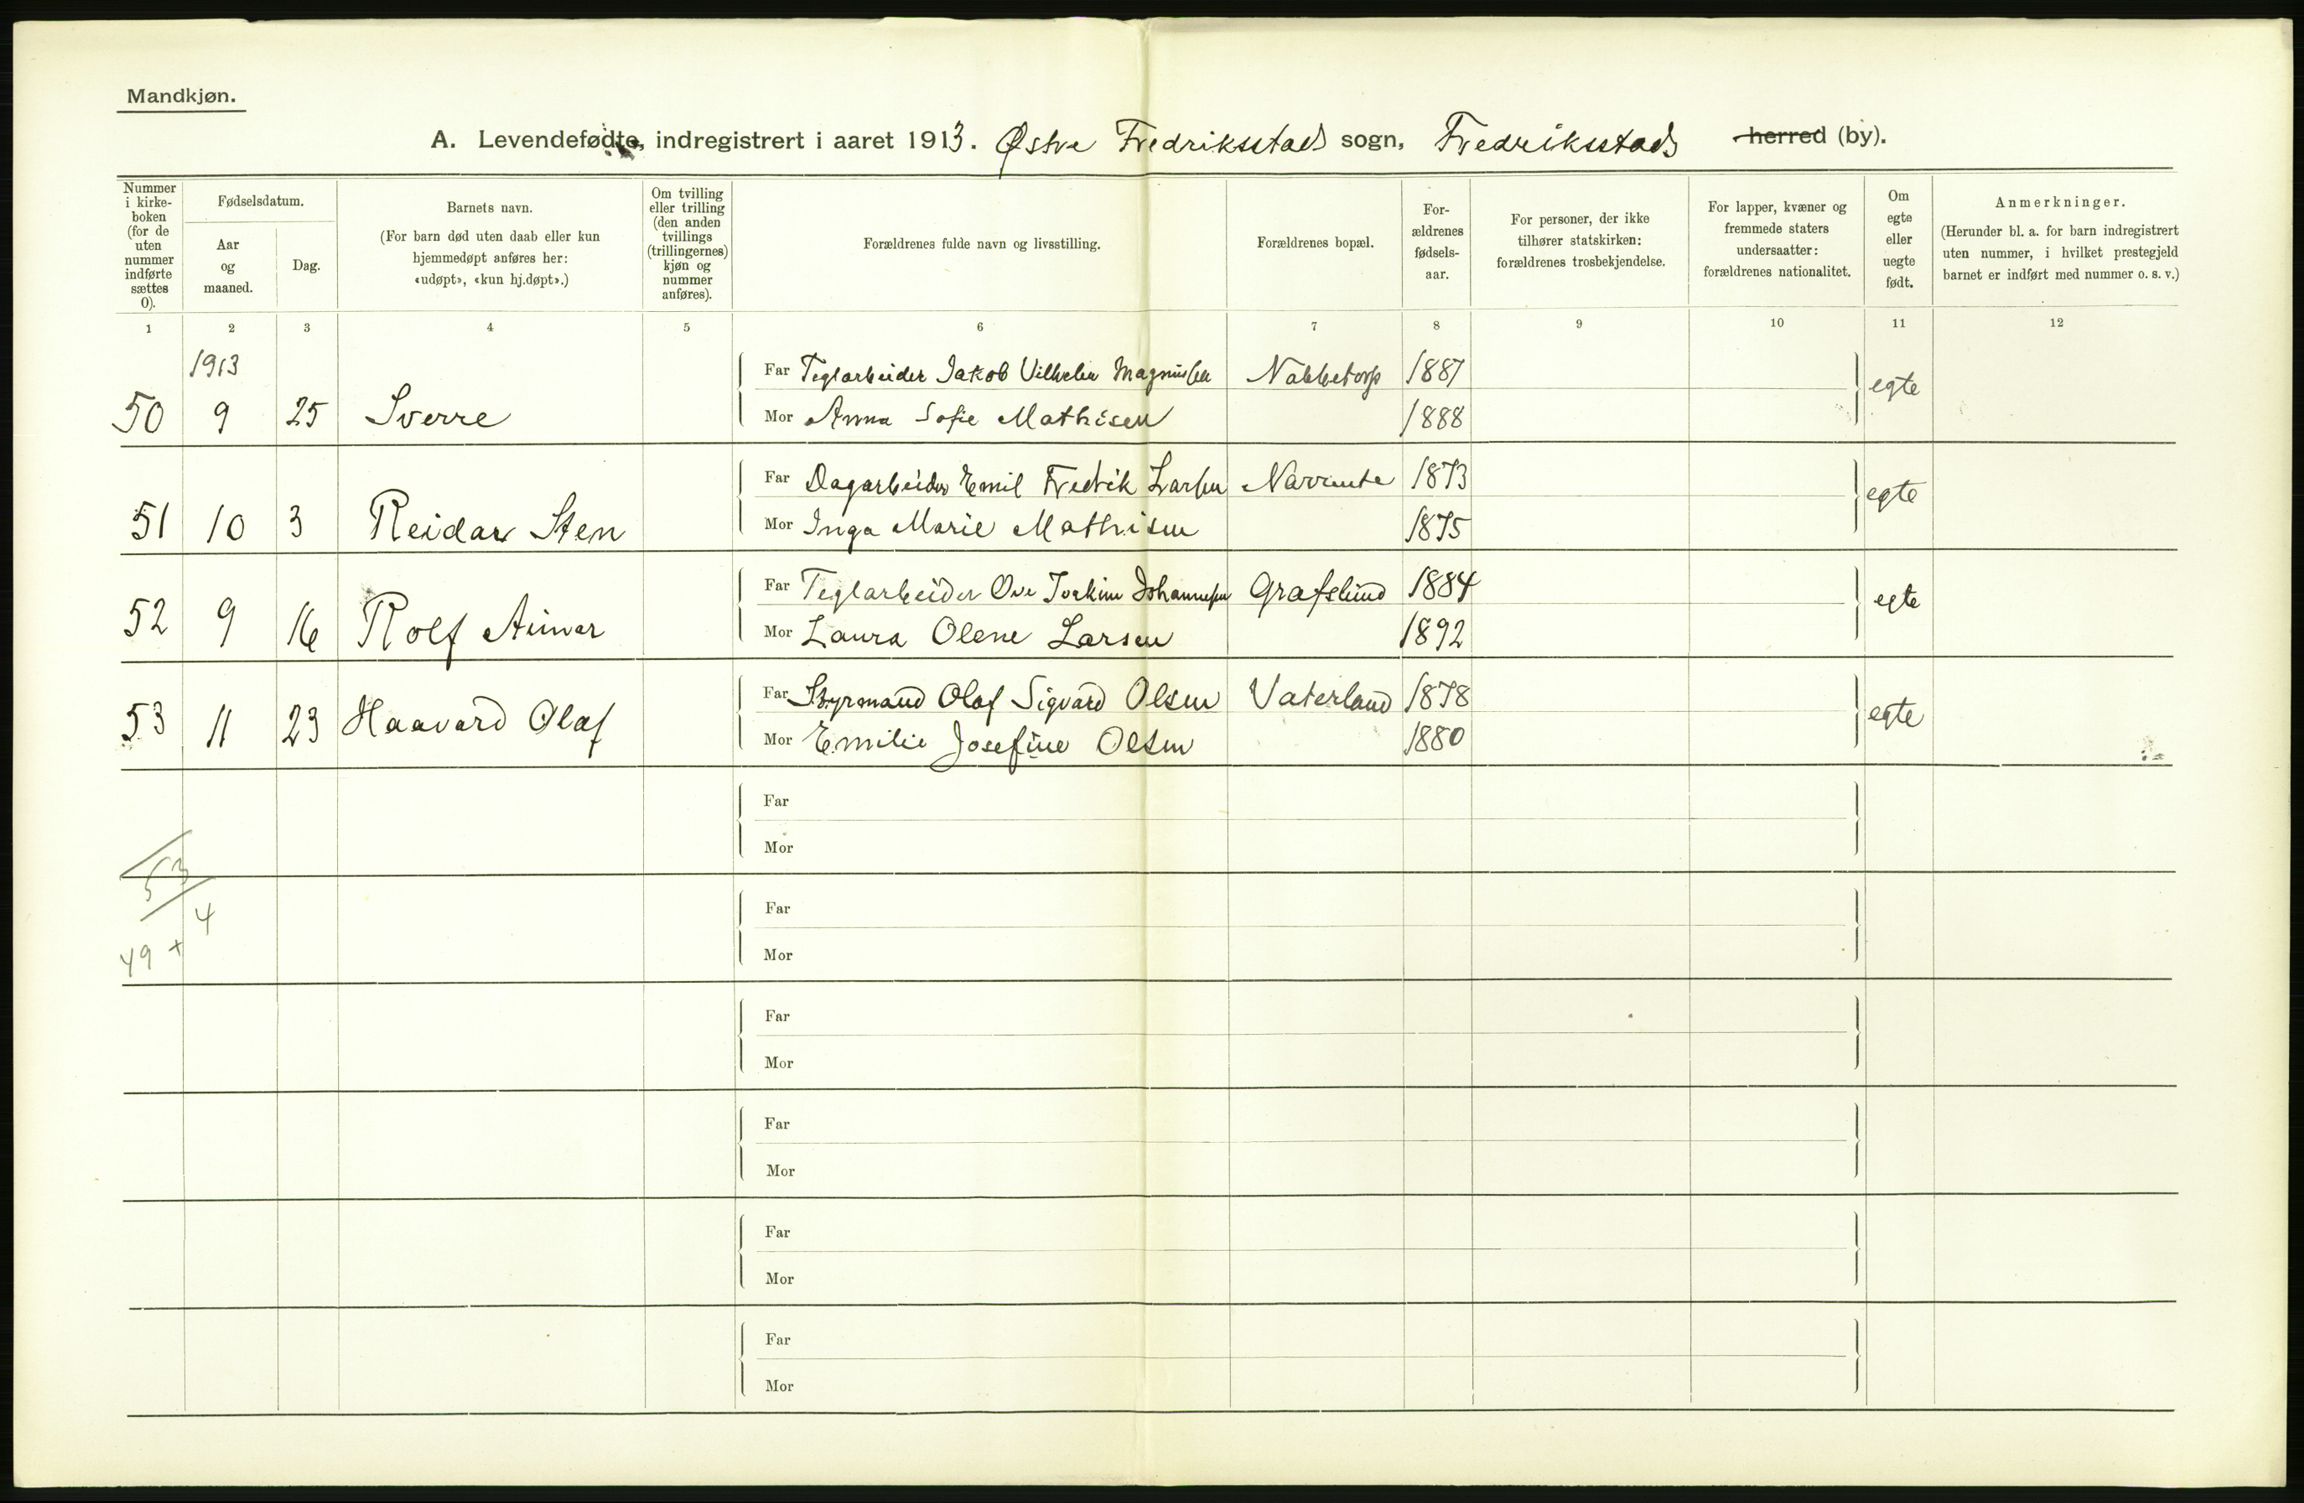 Mandkjøn.
A. Levendefødte, indregistrert i aaret 1913. Østre Fredriksstads sogn, Fredriksstads herred (by).
Nummer i kirke-boken (for de uten nummer indførte sættes 0).
Fødselsdatum.
Aar og maaned.
Dag.
Barnets navn.
(For barn død uten daab eller kun hjemmedøpt anføres her: «udøpt», «kun hj.døpt».)
Om tvilling eller trilling (den anden tvillings (trillingernes) kjøn og nummer anføres).
Forældrenes fulde navn og livsstilling.
Forældrenes bopæl.
For-ældrenes fødsels-aar.
For personer, der ikke tilhører statskirken: forældrenes trosbekjendelse.
For lapper, kvæner og fremmede staters undersaatter: forældrenes nationalitet.
Om egte eller uegte født.
Anmerkninger.
(Herunder bl. a. for barn indregistrert uten nummer, i hvilket prestegjeld barnet er indført med nummer o. s. v.)
1 2 3 4 5 6 7 8 9 10 11 12
1913
Far Teglarbeider Jakob Vilhelm Magnussen Nabbetorp 1887 egte
50 9 25 Sverre Mor Anna Sofie Mathisen 1888
Far Dagarbeider Emil Fredrik Larsen Narrunte 1873 egte
51 10 3 Reidar Sten Mor Inga Marie Mathisen 1875
Far Teglarbeider Ove Joakim Johannesen Grafslund 1884 egte
52 9 16 Rolf Aimar Mor Laura Olene Larsen 1892
Far Styrmand Olaf Sigvard Olsen Vaterland 1878 egte
53 11 23 Haavard Olaf Mor Emilie Josefine Olsen 1880
Far
Mor
53
Far
4
49 +
Mor
Far
Mor
Far
Mor
Far
Mor
Far
Mor